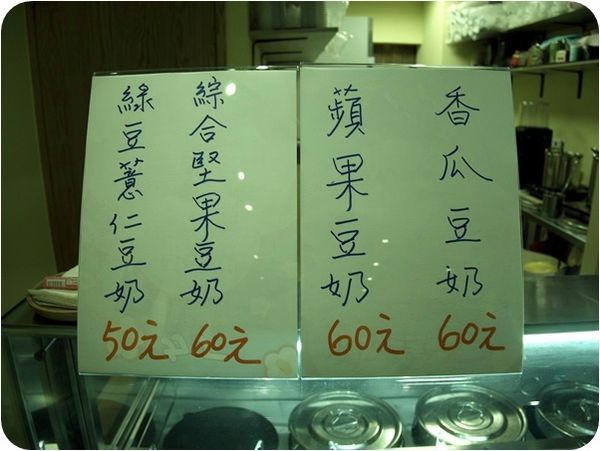 香瓜豆奶
60元
蘋果豆奶
60元
綜合堅果豆奶
60元
綠豆薏仁豆奶
50元